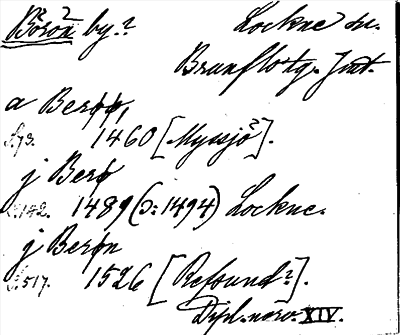 Börön by.? Lockne sn.
Brunflo tg. Jmt.
a Berøø,
S. 73. 1460 [Myssjö?].
j Berø
S. 142. 1489 (ɔ: 1494) Lockne.
j Berøn
S. 517. 1526 [Refsund?].
Dipl. norv. XIV.